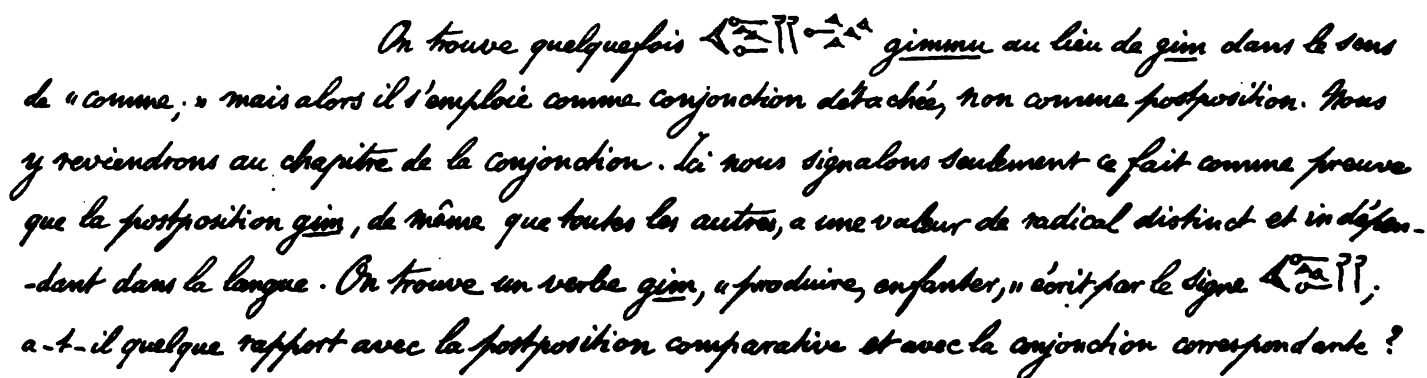 On trouve quelquefois 𒁶 𒈬 gimmu au lieu de gim dans le sens
de "comme;" mais alors il s'emploie comme conjonction détachée, non comme postposition. Nous
y reviendrons au chapitre de la conjonction. Ici nous signalons seulement ce fait comme preuve
que la postposition gim, de même que toutes les autres, a une valeur de radical distinct et indépen-
-dant dans la langue. On trouve un verbe gim, "produire, enfanter," écrit par le signe 𒁶;
a-t-il quelque rapport avec la postposition comparative et avec la conjonction correspondante?